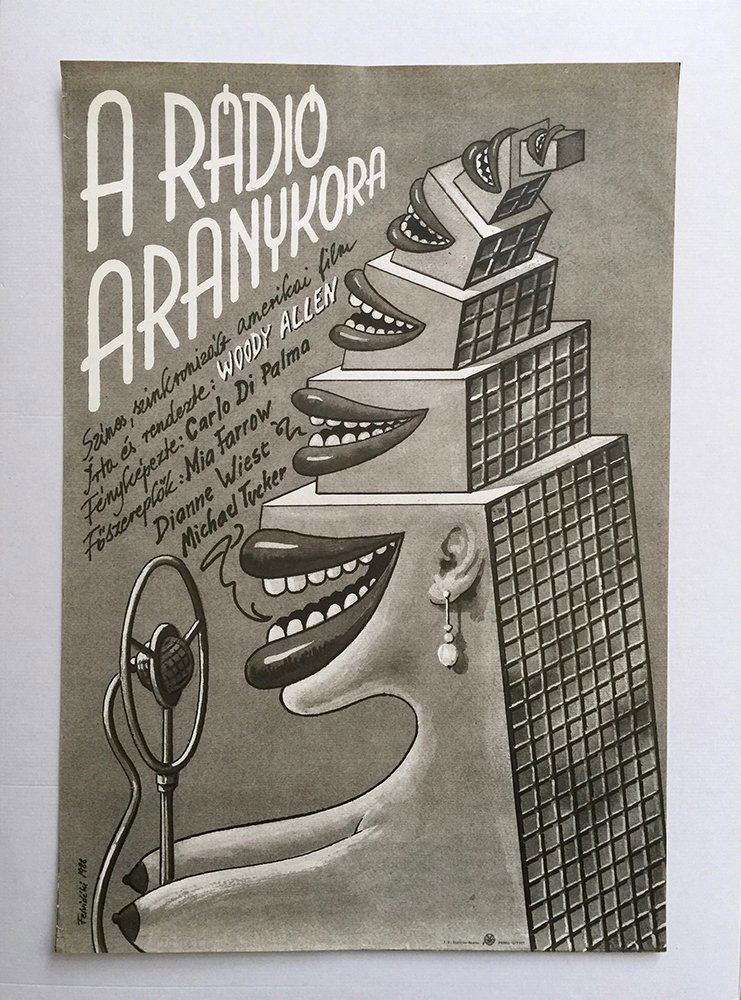 A RÁDIÓ
ARANYKORA
Színes, szinkronizált amerikai film
Írta és rendezte: WOODY ALLEN
Fényképezte: Carlo Di Palma
Főszereplők: Mia Farrow
Dianne Wiest
Michael Tucker
1988